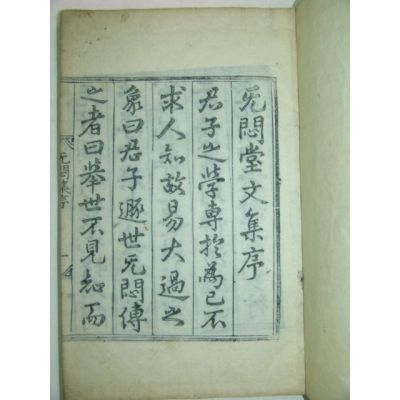 无悶堂文集序
君子之學專於爲已不
求人知故易大過之
象曰君子遯世无悶傳
之者曰擧世不見知而
无悶集序
一